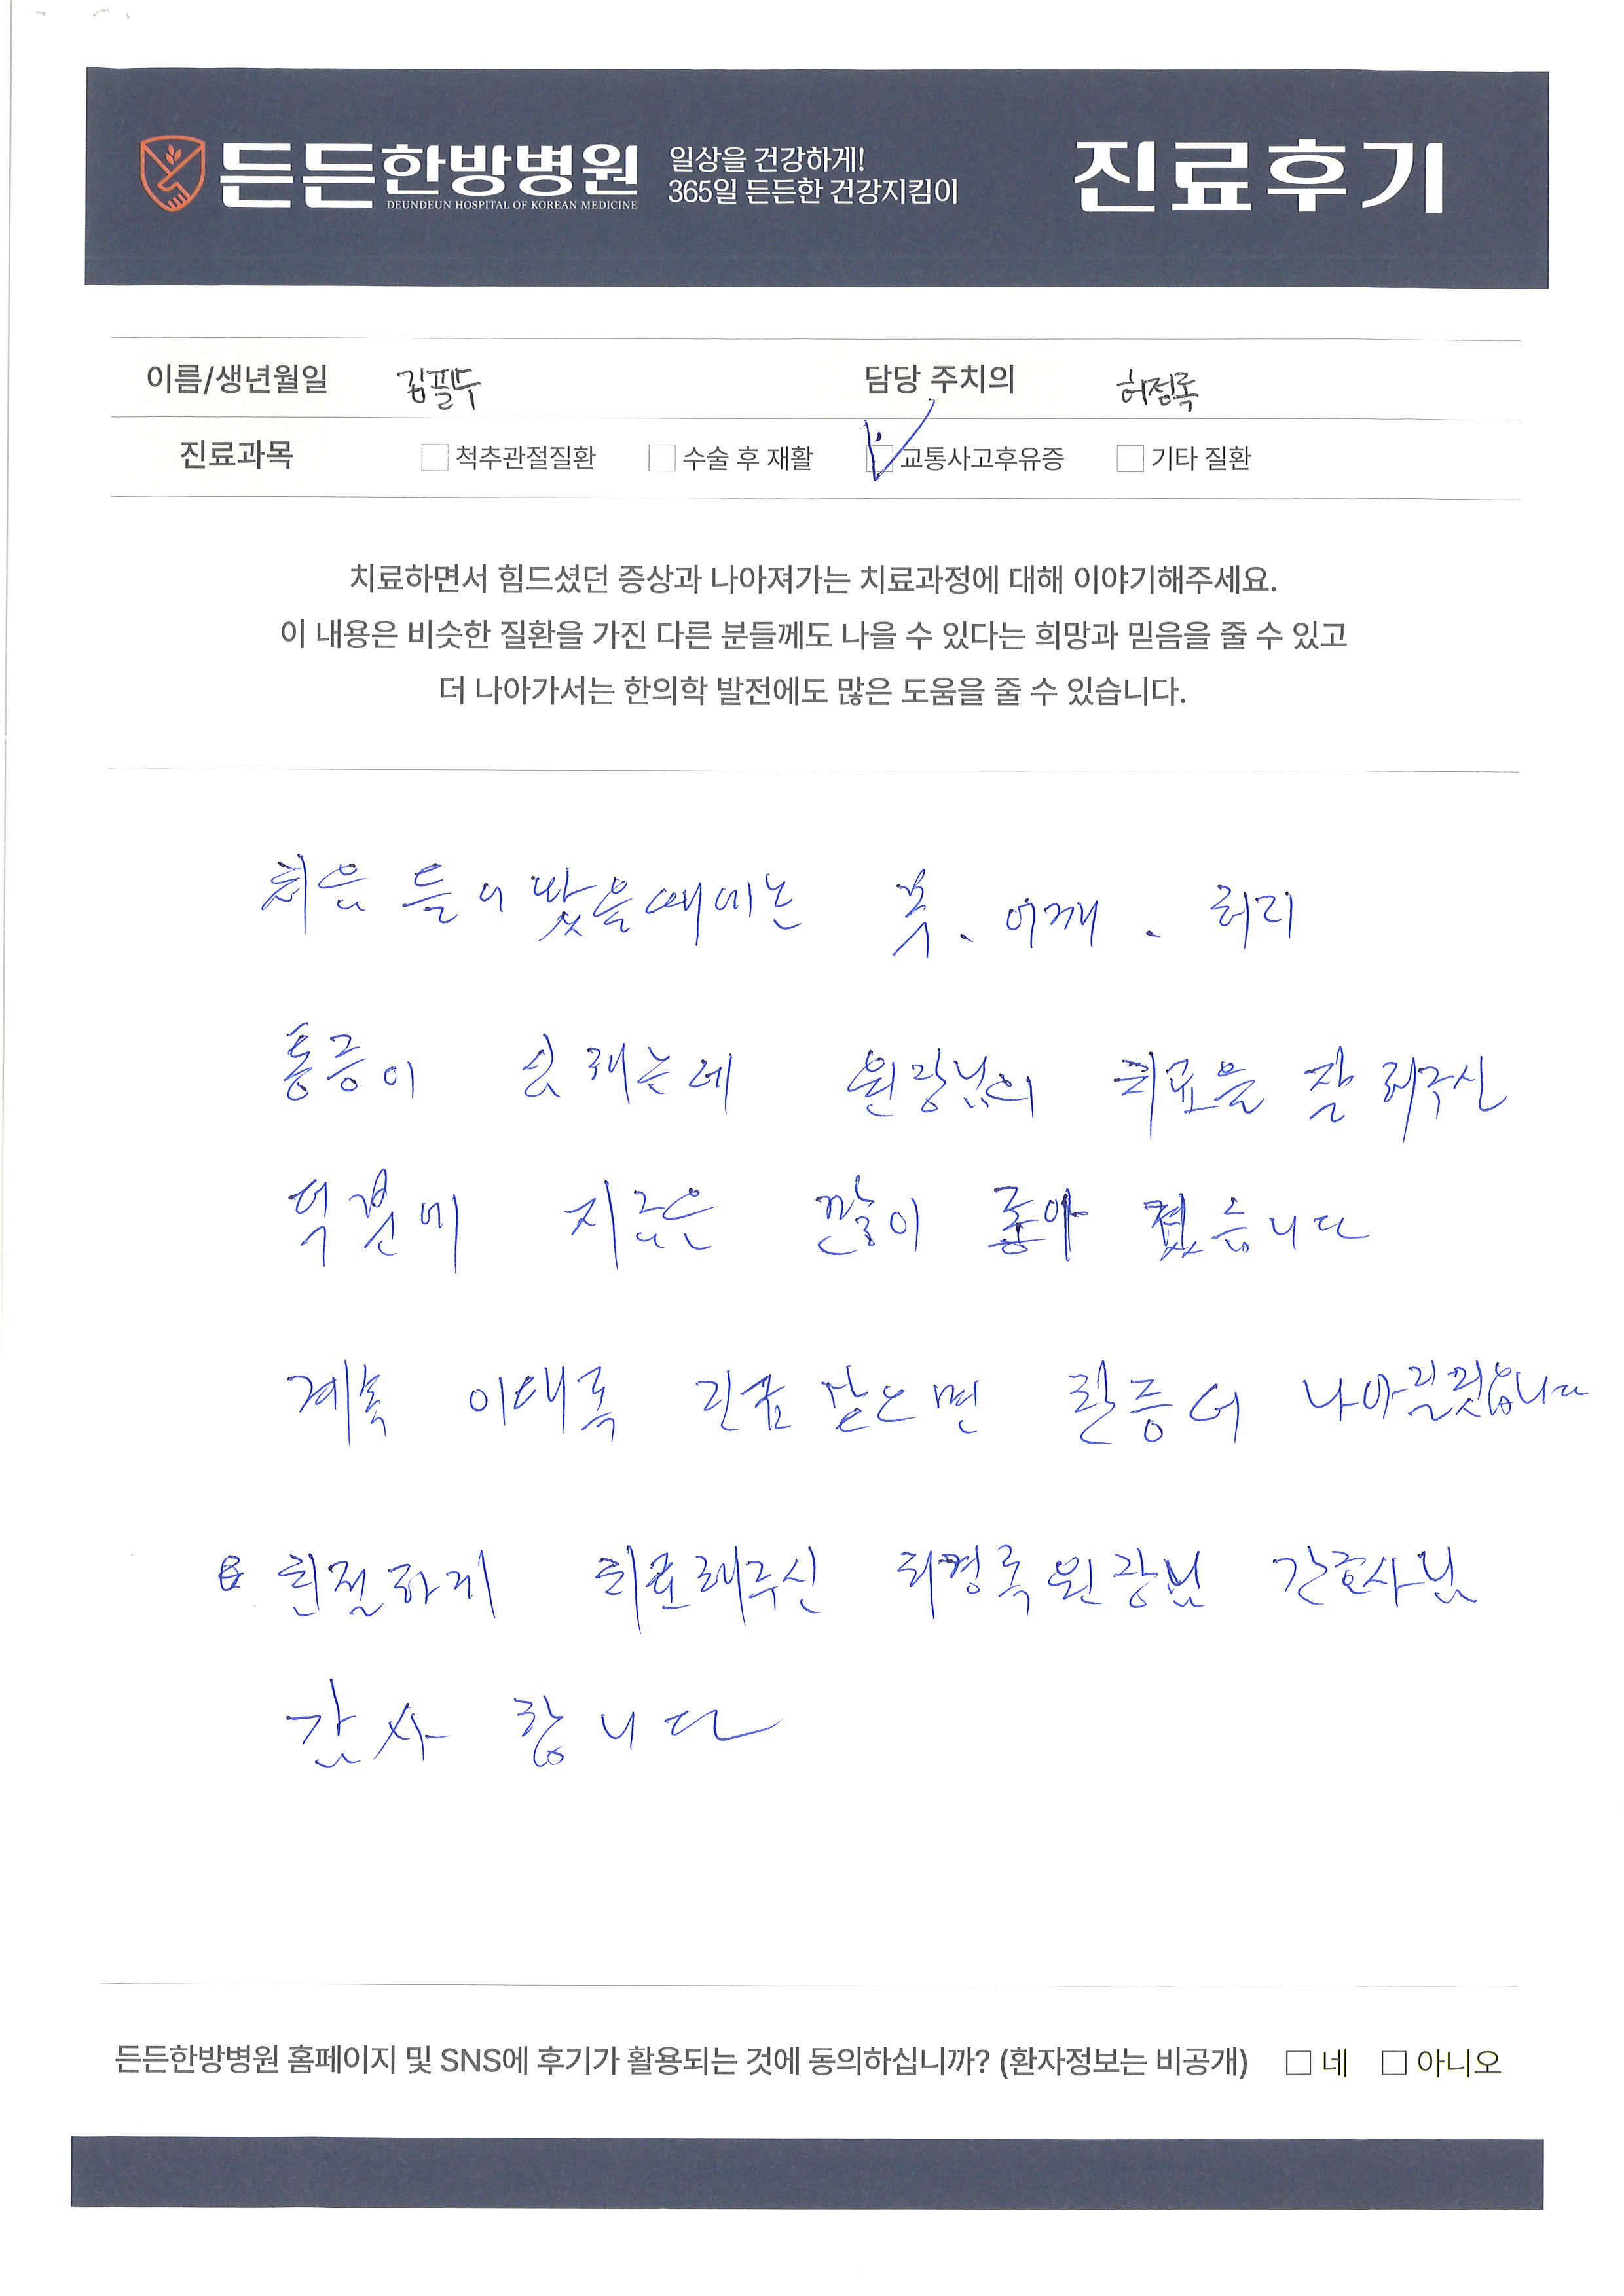 든든한방병원
DEUNDEUN HOSPITAL OF KOREAN MEDICINE
일상을 건강하게!
365일 든든한 건강지킴이
진료후기
이름/생년월일 김필두 담당 주치의 허정록
진료과목 척추관절질환 수술 후 재활 교통사고후유증 기타 질환
치료하면서 힘드셨던 증상과 나아져가는 치료과정에 대해 이야기해주세요.
이 내용은 비슷한 질환을 가진 다른 분들께도 나을 수 있다는 희망과 믿음을 줄 수 있고
더 나아가서는 한의학 발전에도 많은 도움을 줄 수 있습니다.
처음 들어 왔을때에는 목. 어깨. 허리
통증이 원장님의 치료를 잘 해주신
덕분에 지금은 많이 좋아 졌습니다
계속 이대로
친절하게 치료해주신 원장님 간호사님
감사 합니다
든든한방병원 홈페이지 및 SNS에 후기가 활용되는 것에 동의하십니까? (환자정보는 비공개) 네 아니오